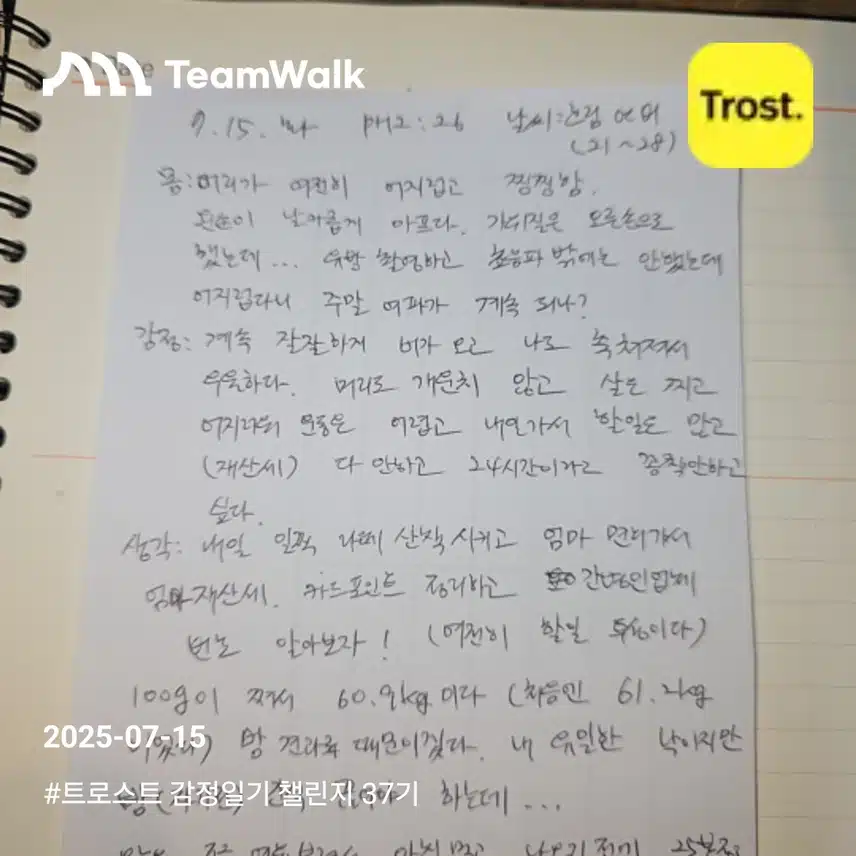 TeamWalk
Trost.
7.15. 화 PM2:26 날씨:흐림
(21~28)
몸:머리가 여전히 어지럽고 찡찡함.
왼손이 날카롭게 아프다. 가위질은 오른손으로
했는데... 유방 촬영하고 초음파 밖에는 안했는데
어지럽다니 주말 여파가 계속 되나?
감정: 계속 잔잔하게 비가 오고 나도 축 처져서
우울하다. 머리도 개운치 않고 살도 찌고
어지러워 운동은 어렵고 내일가서 할일도 많고
(재산세) 다 안하고 24시간이라고 꼼짝안하고
싶다.
생각: 내일 일찍 산책 시키고 엄마 면회가서
엄마재산세. 카드포인트 정리하고 간병인업체
번호 알아보자! (여전히 할일 이다)
100g이 쪄서 60.9kg 이다 (처음엔 61.2kg
이었다) 빵 견과류 때문이겠다. 내 유일한 낙이지만
하는데...
2025-07-15
#트로스트 감정일기 챌린지 37기